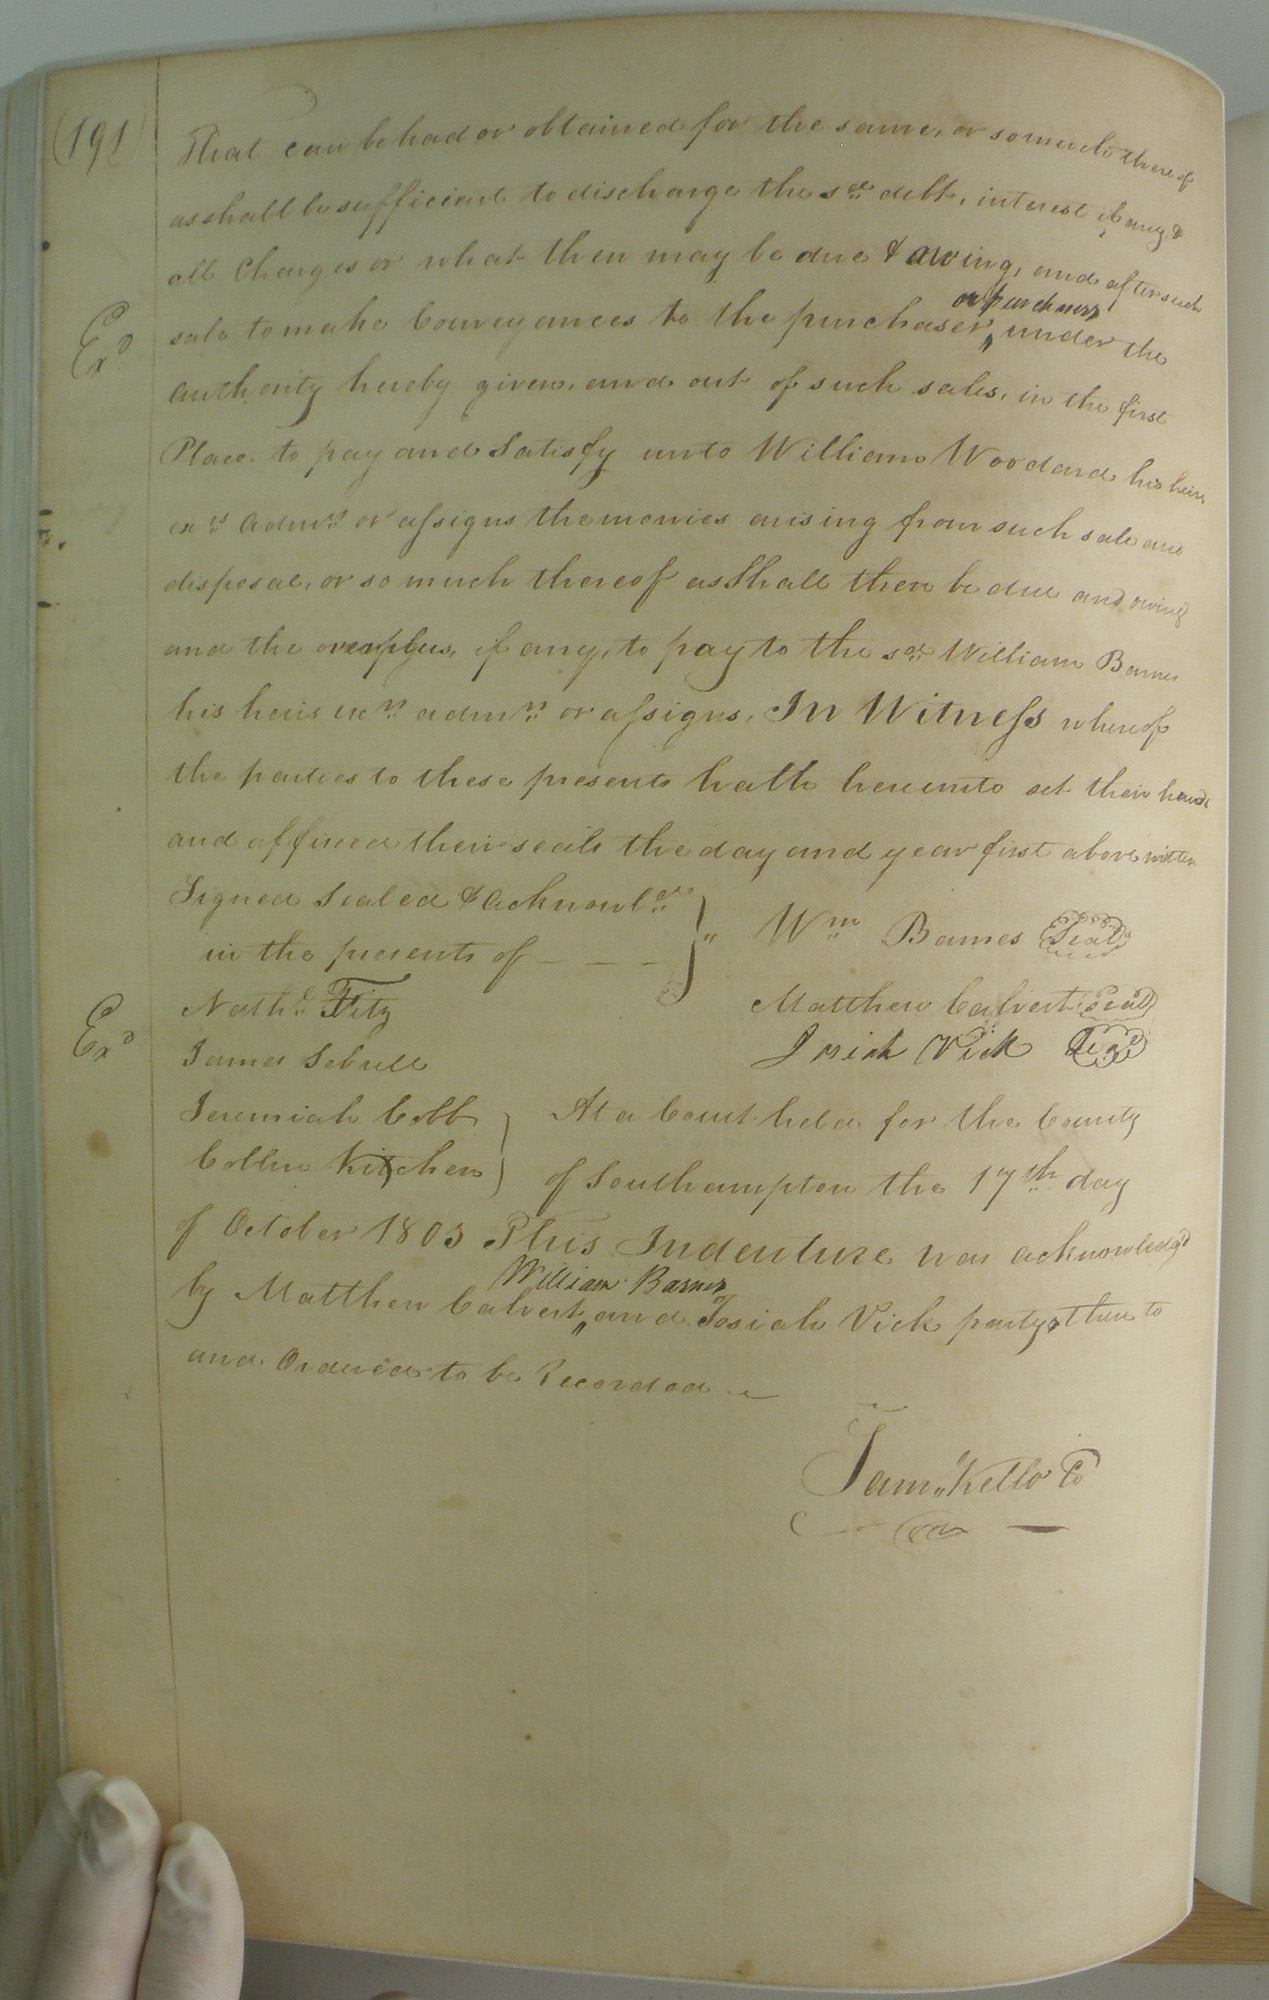 (191)
That can be had or obtained for the same, or so much thereof
as shall be sufficient to discharge the sd. debt, interest if any &
all Charges or what then may be due & owing, and after such
or purchasers
Exd
sale to make Conveyances to the purchaser, under the
authority hereby given, and out of such sales, in the first
Place to pay and Satisfy unto William Woodard his heirs
exrs admrs or assigns the monies arising from such sale and
disposal, or so much thereof as Shall then be due and owing
and the overplus, if any, to pay to the sd. William Barnes
his heirs exrs admrs or assigns, In Witness whereof
the parties to these presents hath hereunto set their hands
and affixed their seals the day and year first above written
Signed Sealed & acknowld.
in the presents of - - - }" Wm Barnes Seal
Nathl. Fitz Matthew Calvert Seal
Exd
James Sebrell Josiah Vick Seal
Jeremiah Cobb At a Court held for the County
Collin Kitchen } of Southampton the 17th day
of October 1803 This Indenture was acknowledgd
William Barnes
by Matthew Calvert, and Josiah Vick partys there to
and Ordered to be Recorded
Saml. Kello Co